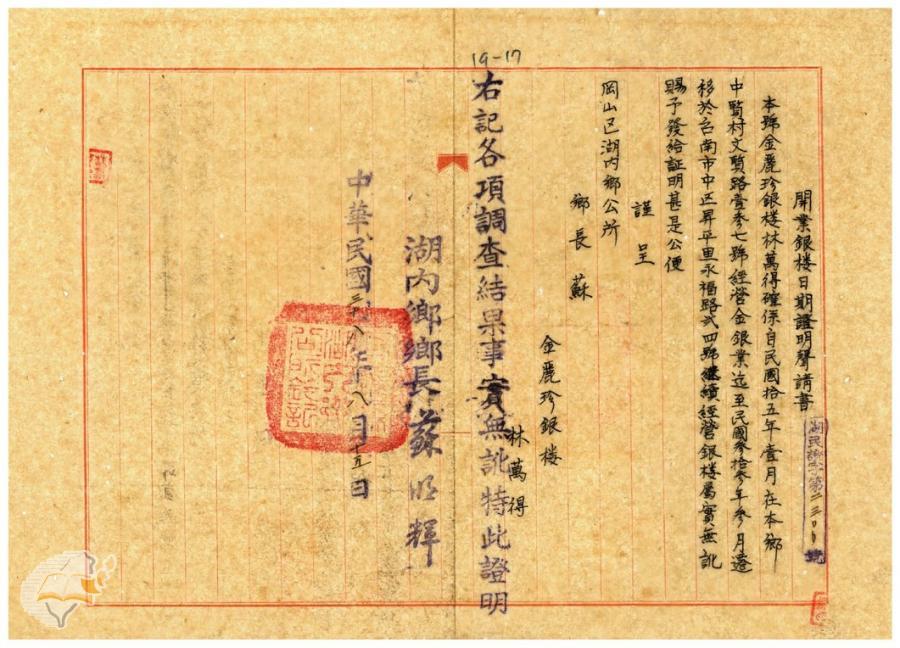 19-17
開業銀楼日期證明聲請書
湖民證字第二三〇〇號
本號金麗珍銀楼林萬得確係自民國拾五年壹月在本鄉
中賢村文賢路壹参七號經營金銀業迄至民國参拾参年参月遷
移於台南市中区昇平里永福路弍四號継續經營銀楼屬實無訛
賜予發給証明甚是公便
謹呈
岡山区湖内鄉公所
鄉長 蘇
金麗珍銀楼
林萬得
右記各項調查結果事實無訛特此證明
湖内鄉鄉長蘇明輝
中華民國三八年八月十五日